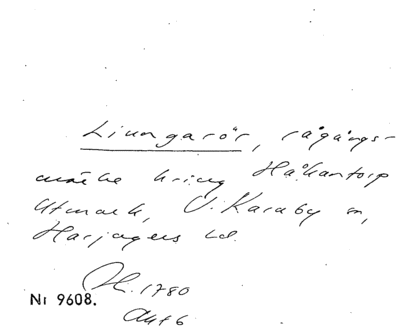 Liungarör, rågångs-
märke kring Håkantorp
Utmark, V. Karaby sn,
Harjagers hd.
LM. 1780
Nr 9608.
Akt 6